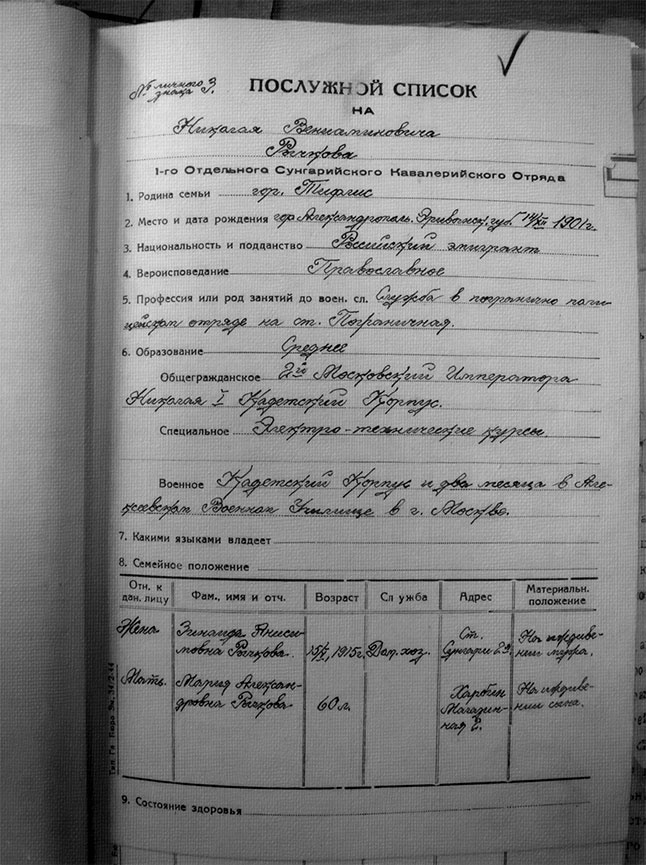 № личного
знака 3.
ПОСЛУЖНОЙ СПИСОК
НА
Николая Вениаминовича
Рычкова
1-го Отдельного Сунгарийского Кавалерийского Отряда
1. Родина семьи гор. Тифлис
2. Место и дата рождения гор. Александрополь. Эриванск. губ. 14/XII 1901 г.
3. Национальность и подданство Российский эмигрант
4. Вероисповедание Православное
5. Профессия или род занятий до воен. сл. Служба в погранично поли-
цейском отряде на ст. Пограничная.
6. Образование Среднее
Общегражданское 2й Московский Императора
Николая I Кадетский Корпус.
Специальное Электро-технические курсы.
Военное Кадетский Корпус и два месяца в Але-
ксеевском Военном Училище в г. Москве.
7. Какими языками владеет
8. Семейное положение
Отн. к дан. лицу Фам., имя и отч. Возраст Сл ужба Адрес Материальн. положение
Жена Зинаида Аниси-
мовна Рычкова. 1915 г. Дом. хоз. Ст. Сунгари 2я. На иждиве-
нии мужа.
Мать. Мария Алексан-
дровна Рычкова 60 л. Харбин Магазин-
ная На иждиве-
нии сына.
9. Состояние здоровья